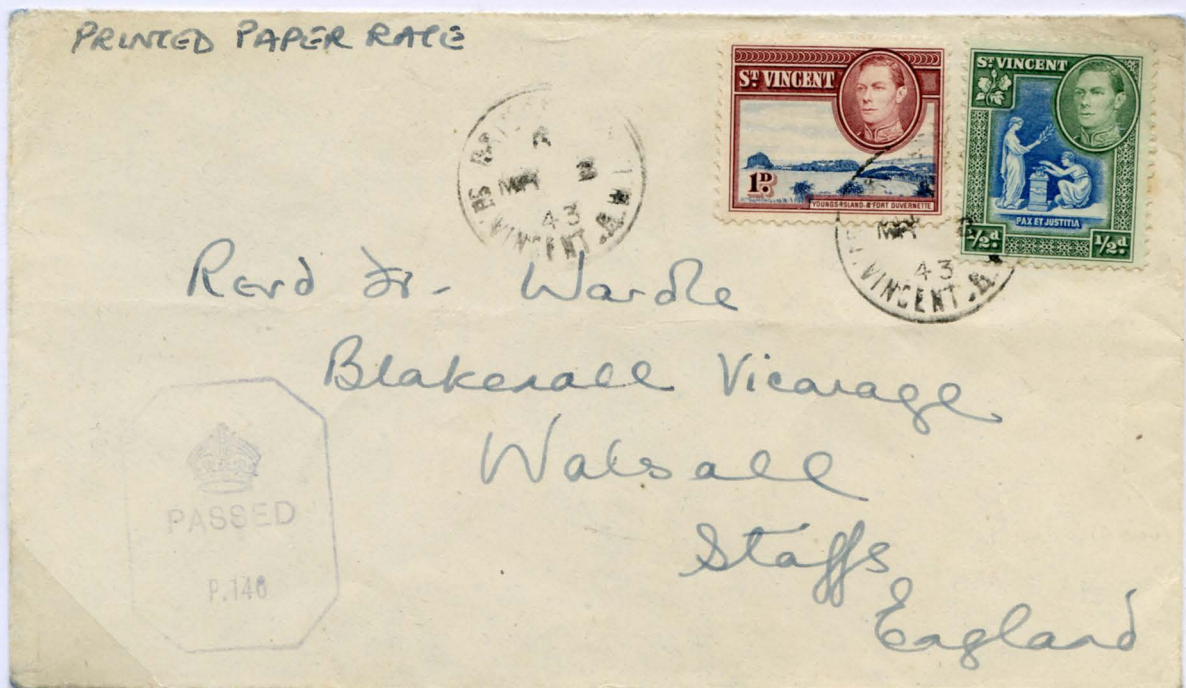 PRINTED PAPER RATE
ST VINCENT
1D.
YOUNGS ISLAND & FORT DUVERNETTE
ST VINCENT
PAX ET JUSTITIA
1/2d 1/2d
43
VINCENT
43
VINCENT
Revd Fr. Wardle
Blakenall Vicarage
Walsall
Staffs
England
PASSED
P.146